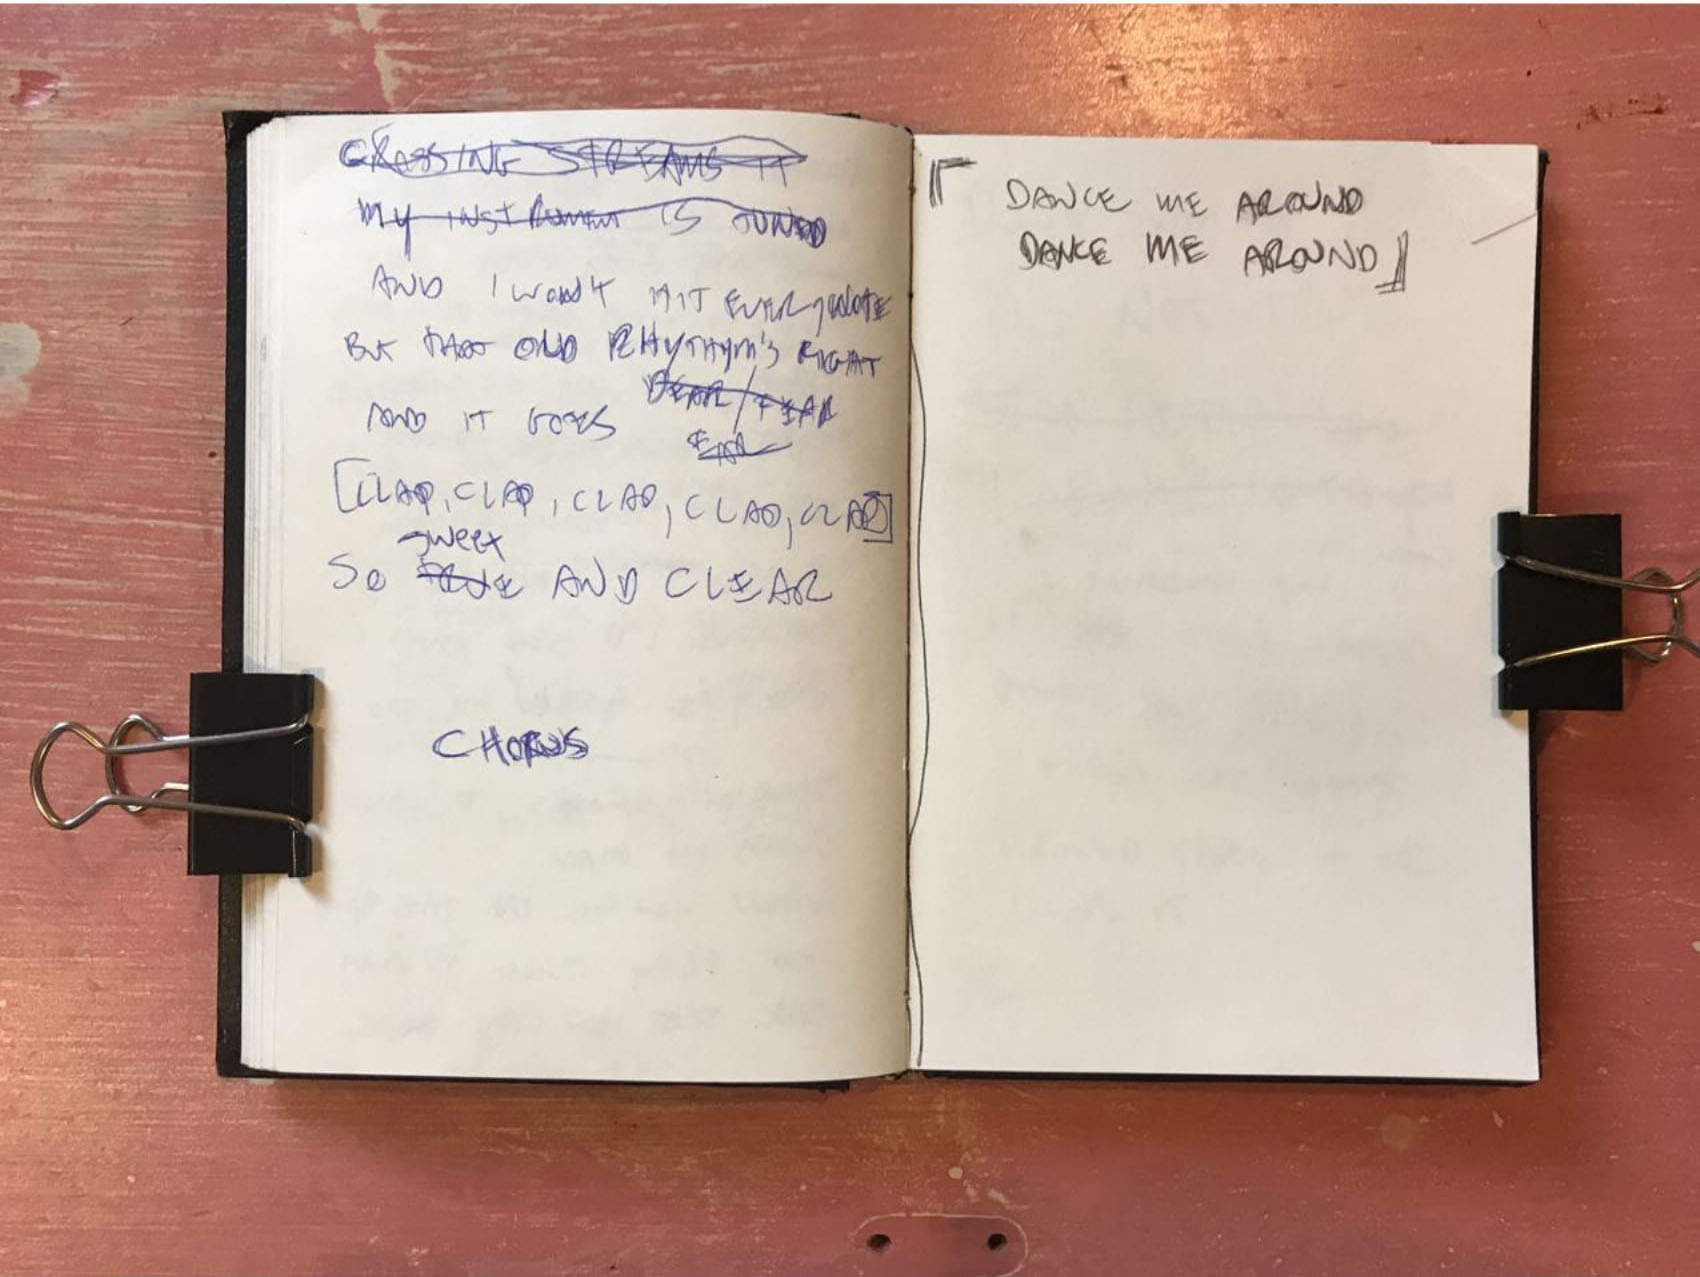 CROSSING STREAMS IT
MY INSTRUMENT IS TUNED
AND I WON'T HIT EVERY NOTE
BUT THAT OLD RHYTHYM'S RIGHT
DEAR / FEAR
AND IT GOES
EAR
[CLAP, CLAP, CLAP, CLAP, CLAP]
SWEET
SO TRUE AND CLEAR
CHORUS
DANCE ME AROUND
DANCE ME AROUND